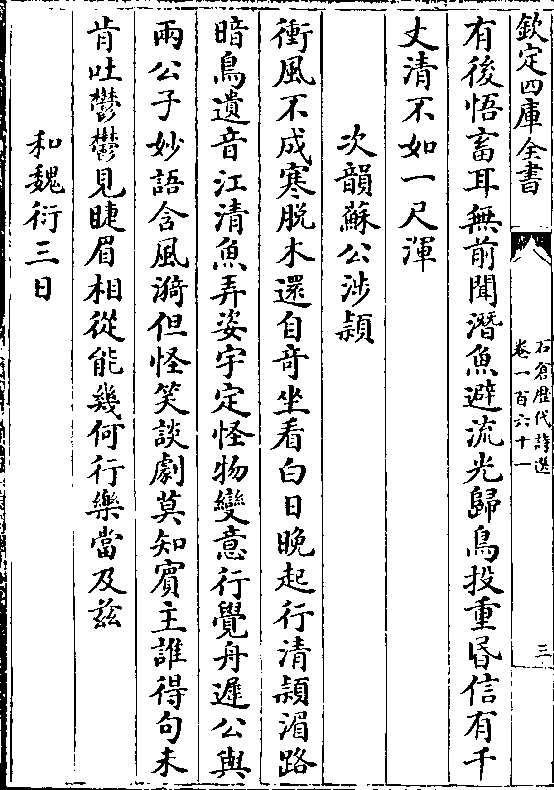 欽定四庫全書
石倉歷代詩選
卷一百六十一
三
有後悟畜耳無前聞潛魚避流光歸鳥投重昏信有千
丈清不如一尺渾
次韻蘇公涉潁
衝風不成寒脱木還自竒坐看白日晚起行清潁湄路
暗鳥遺音江清魚弄姿宇定怪物變意行覺舟遲公與
兩公子妙語含風漪但怪笑談劇莫知賓主誰得句未
肯吐鬱鬱見睫眉相從能幾何行樂當及兹
和魏衍三日